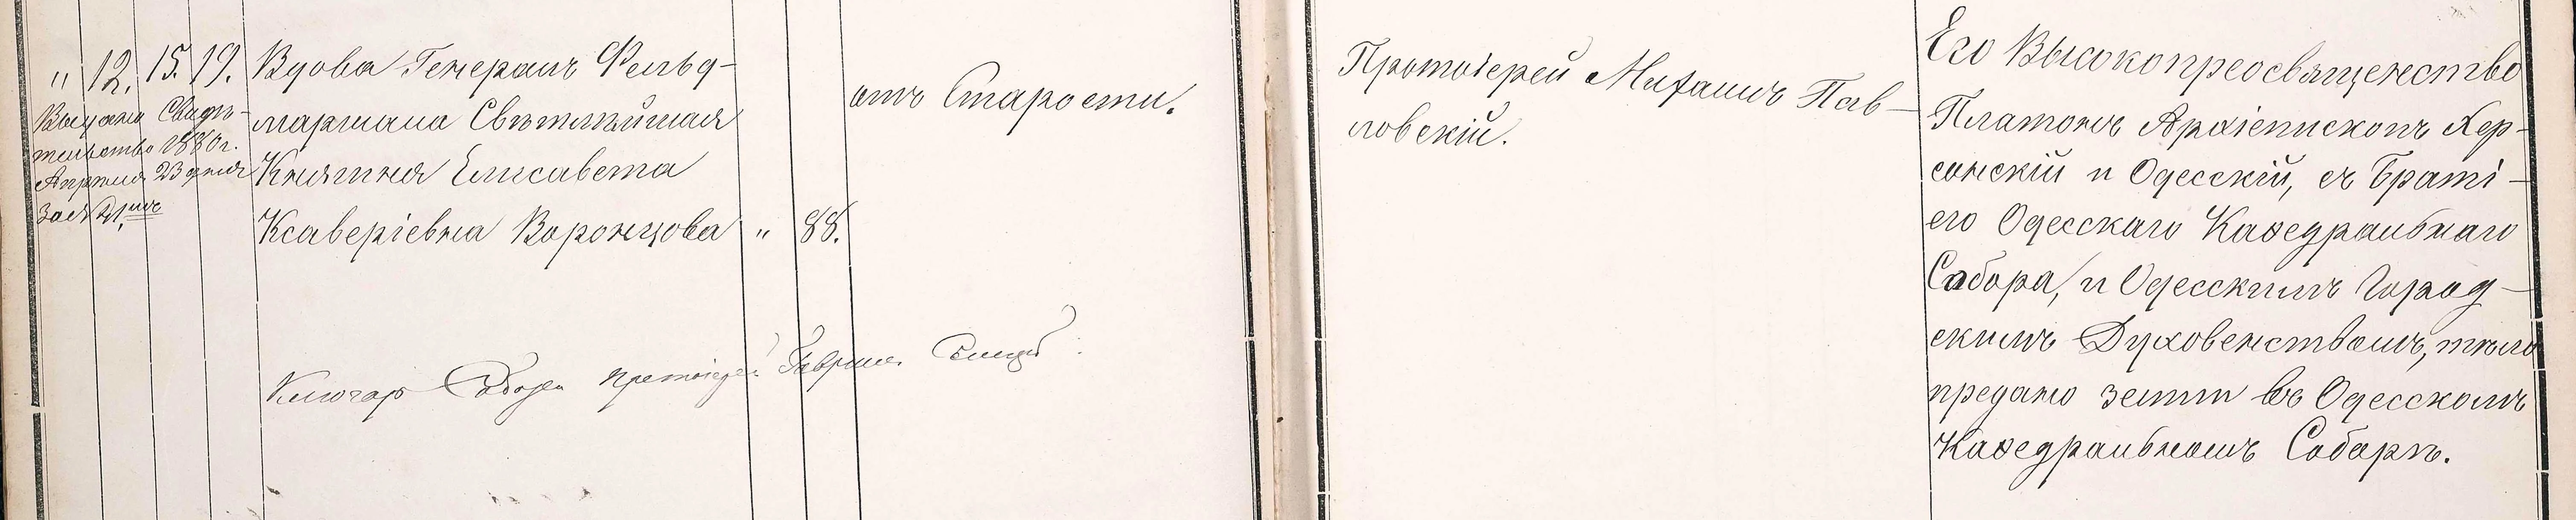 " 12. 15. 19. Вдова Генералъ Фельд-
маршала Свѣтлѣйшая
Княгиня Елисавета
Ксаверіевна Воронцова " 88.
Выдано Свидѣ-
тельство 1880 г.
Апрѣля 23 дня
за №
отъ Старости.
Ключарь Собора протоіерей Гавріилъ
Протоіерей Михаилъ Пав-
ловскій.
Его Высокопреосвященство
Платонъ Архіепископъ Хер-
сонскій и Одесскій, съ Браті-
ею Одесскаго Каѳедральнаго
Собора, и Одесскимъ Город-
скимъ Духовенствомъ, тѣло
предано землѣ въ Одесскомъ
Каѳедральномъ Соборѣ.